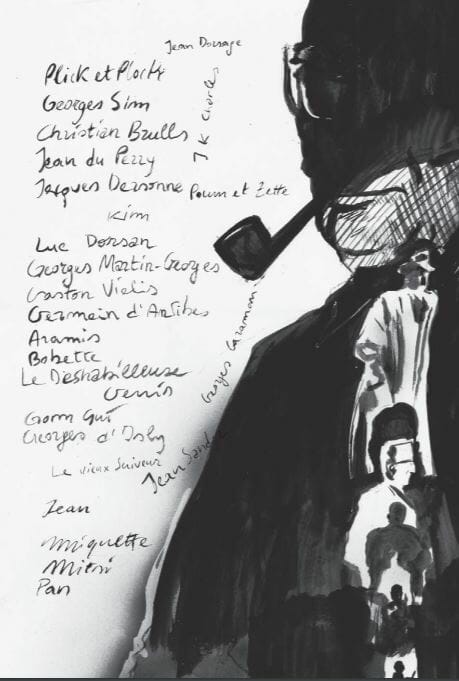 Jean Dorsage
Plick et Plock
Georges Sim
J K Charles
Christian Brulls
Jean du Perry
Jacques Dersonne
Poum et Zette
Kim
Luc Dorsan
Georges Martin-Georges
Gaston Vialis
Germain d'Antibes
Aramis
Bobette
Le Déshabilleuse
Gemis
Georges Caraman
Gom Gut
Georges d'Isly
Le vieux Suiveur
Jean Sandor
Jean
Miquette
Misti
Pan